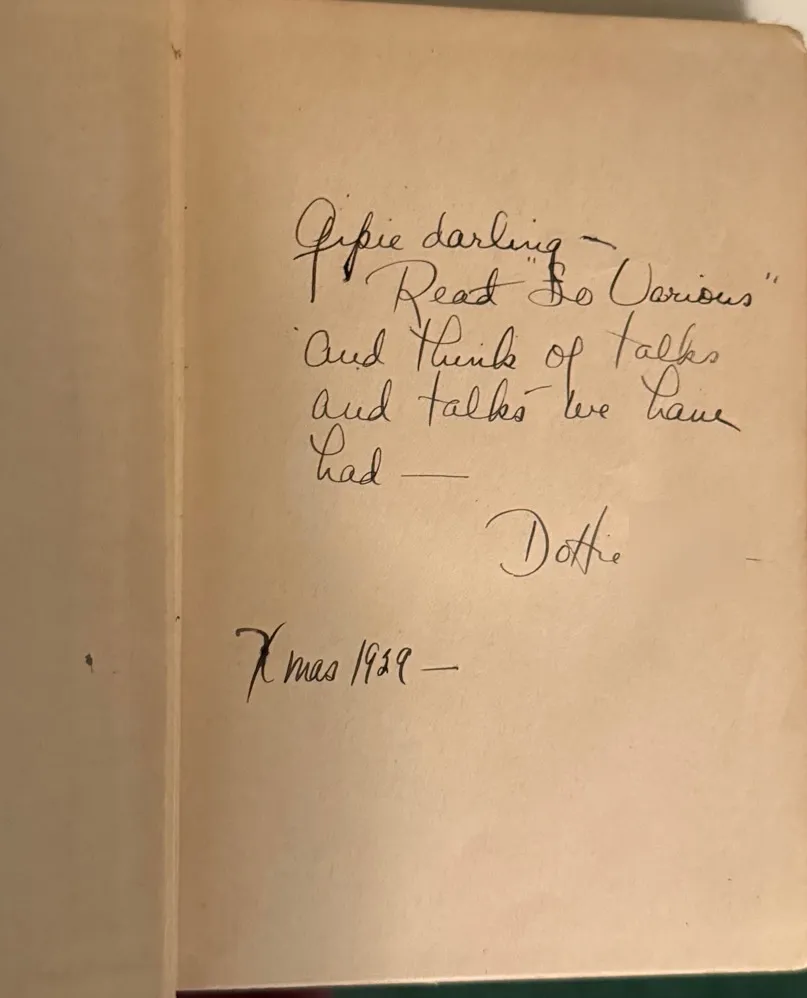 Gipsie darling –
Read "So Various"
and think of talks
and talks we have
had —
Dottie
Xmas 1929 —